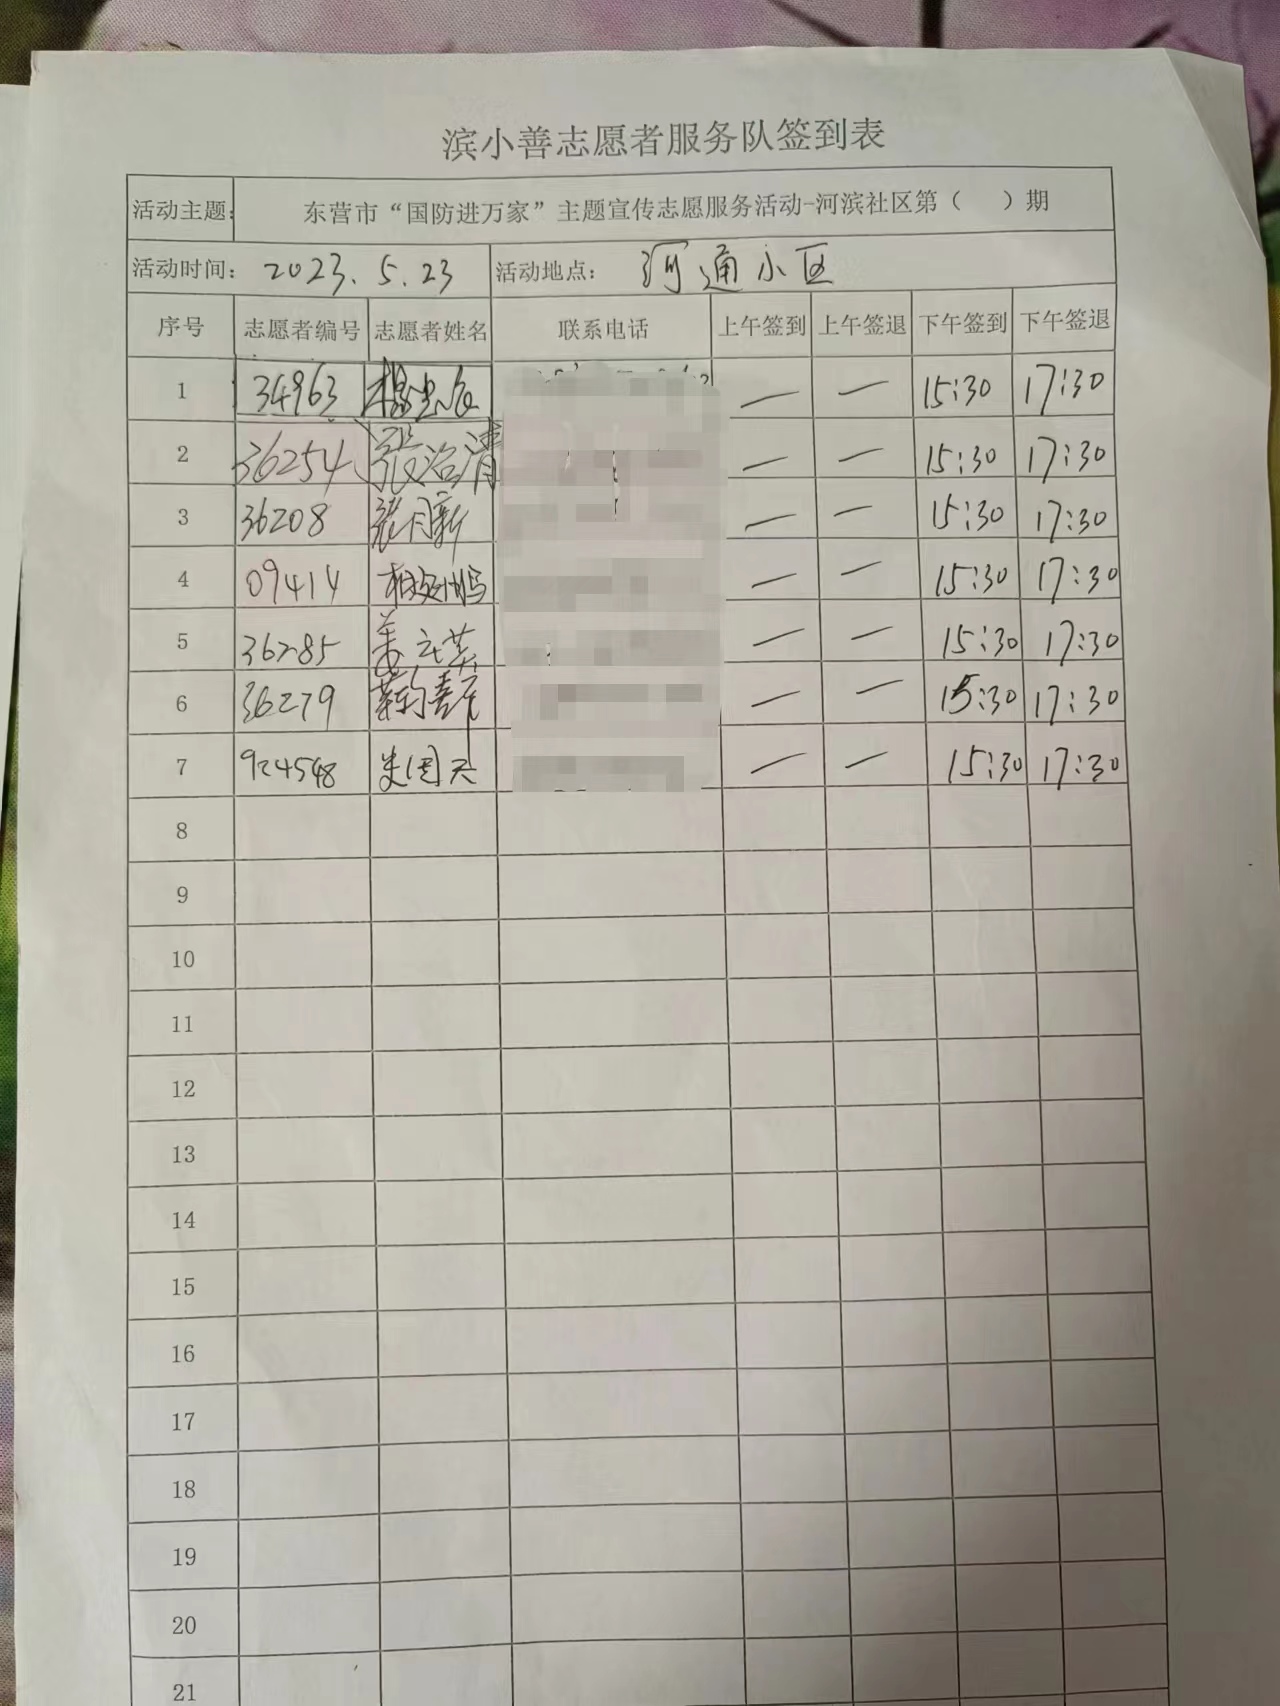 滨小善志愿者服务队签到表
活动主题: 东营市“国防进万家”主题宣传志愿服务活动-河滨社区第（ ）期
活动时间: 2023.5.23 活动地点: 河通小区
序号 志愿者编号 志愿者姓名 联系电话 上午签到 上午签退 下午签到 下午签退
1 34963 — — 15:30 17:30
2 36254 张治清 — — 15:30 17:30
3 36208 张月新 — — 15:30 17:30
4 09414 — — 15:30 17:30
5 36285 姜立英 — — 15:30 17:30
6 36279 — — 15:30 17:30
7 924548 史国天 — — 15:30 17:30
8
9
10
11
12
13
14
15
16
17
18
19
20
21